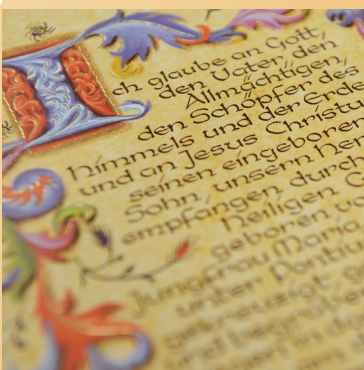 Ich glaube an Gott,
den Vater, den
Allmächtigen,
den Schöpfer des
Himmels und der Erde
und an Jesus Christu
seinen eingeboren
Sohn, unsern Her
empfangen durch
Heiligen
geboren vo
Jungfrau Maria
unter Pontiu
gekreuzigt
und begrabe